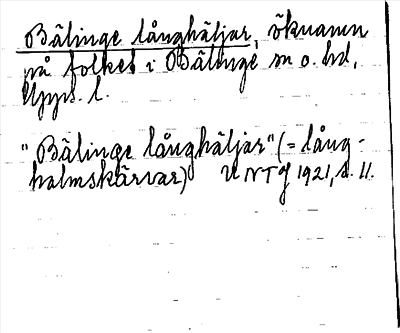 Bälinge långhäljar, öknamn
på folket i Bälinge sn o. hd,
Upps. l.
"Bälinge långhäljar" (= lång-
halmskärvar) UNT J 1921, s. 11.